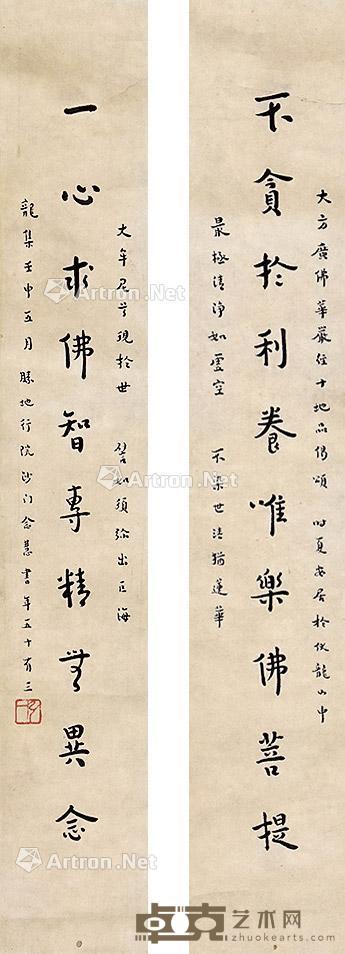 不貪於利養唯樂佛菩提
大方廣佛華嚴經十地品偈頌 時夏安居於伏龍山中
最極清淨如虛空 不染世法猶蓮華
一心求佛智專精無異念
大牟尼尊現於世 譬如須弥出巨海
龍集壬申五月 勝地行院沙门念慧書年五十有三
Artron.Net
Artron.Net
Artron.Net
Artron.Net
Artron.Net
Artron.Net
卓克艺术网
zhuokearts.com